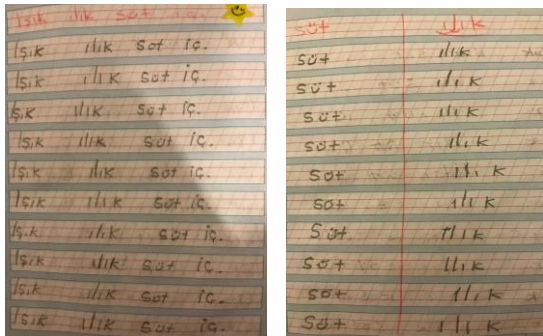 Işık ılık süt
Işık ılık süt iç.
Işık ılık süt iç.
Işık ılık süt iç.
Işık ılık süt iç.
Işık ılık süt iç.
Işık ılık süt iç.
Işık ılık süt iç.
Işık ılık süt iç.
Işık ılık süt iç.
Işık ılık süt iç.
süt ılık
süt ılık
süt ılık
süt ılık
süt ılık
süt ılık
süt ılık
süt ılık
süt ılık
süt ılık
süt ılık